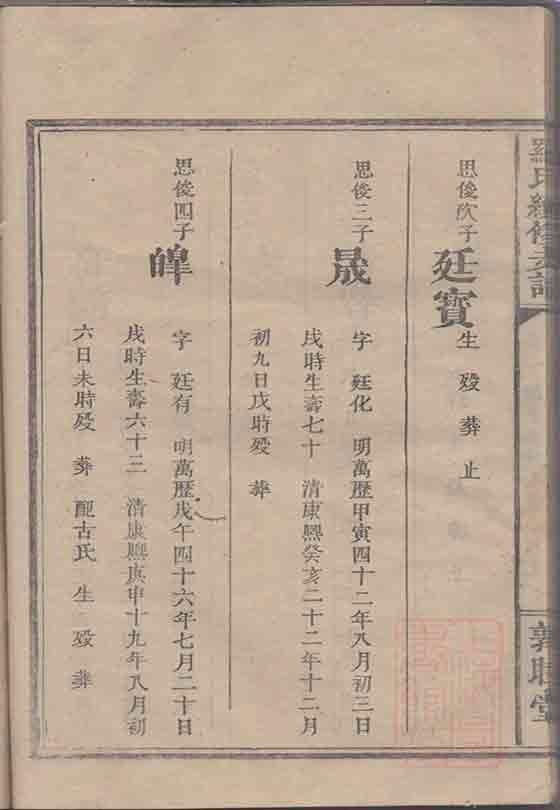 羅氏續修支譜
敦睦堂
思俊次子
廷寶
生 歿 葬 止
思俊三子
晟
字 廷化 明萬歷甲寅四十二年八月初三日
戌時生壽七十 清康熙癸亥二十二年十二月
初九日戊時歿 葬
思俊四子
皥
字 廷有 明萬歷戊午四十六年七月二十日
戌時生壽六十三 清康熙庚申十九年八月初
六日未時歿 葬 配古氏 生 歿 葬